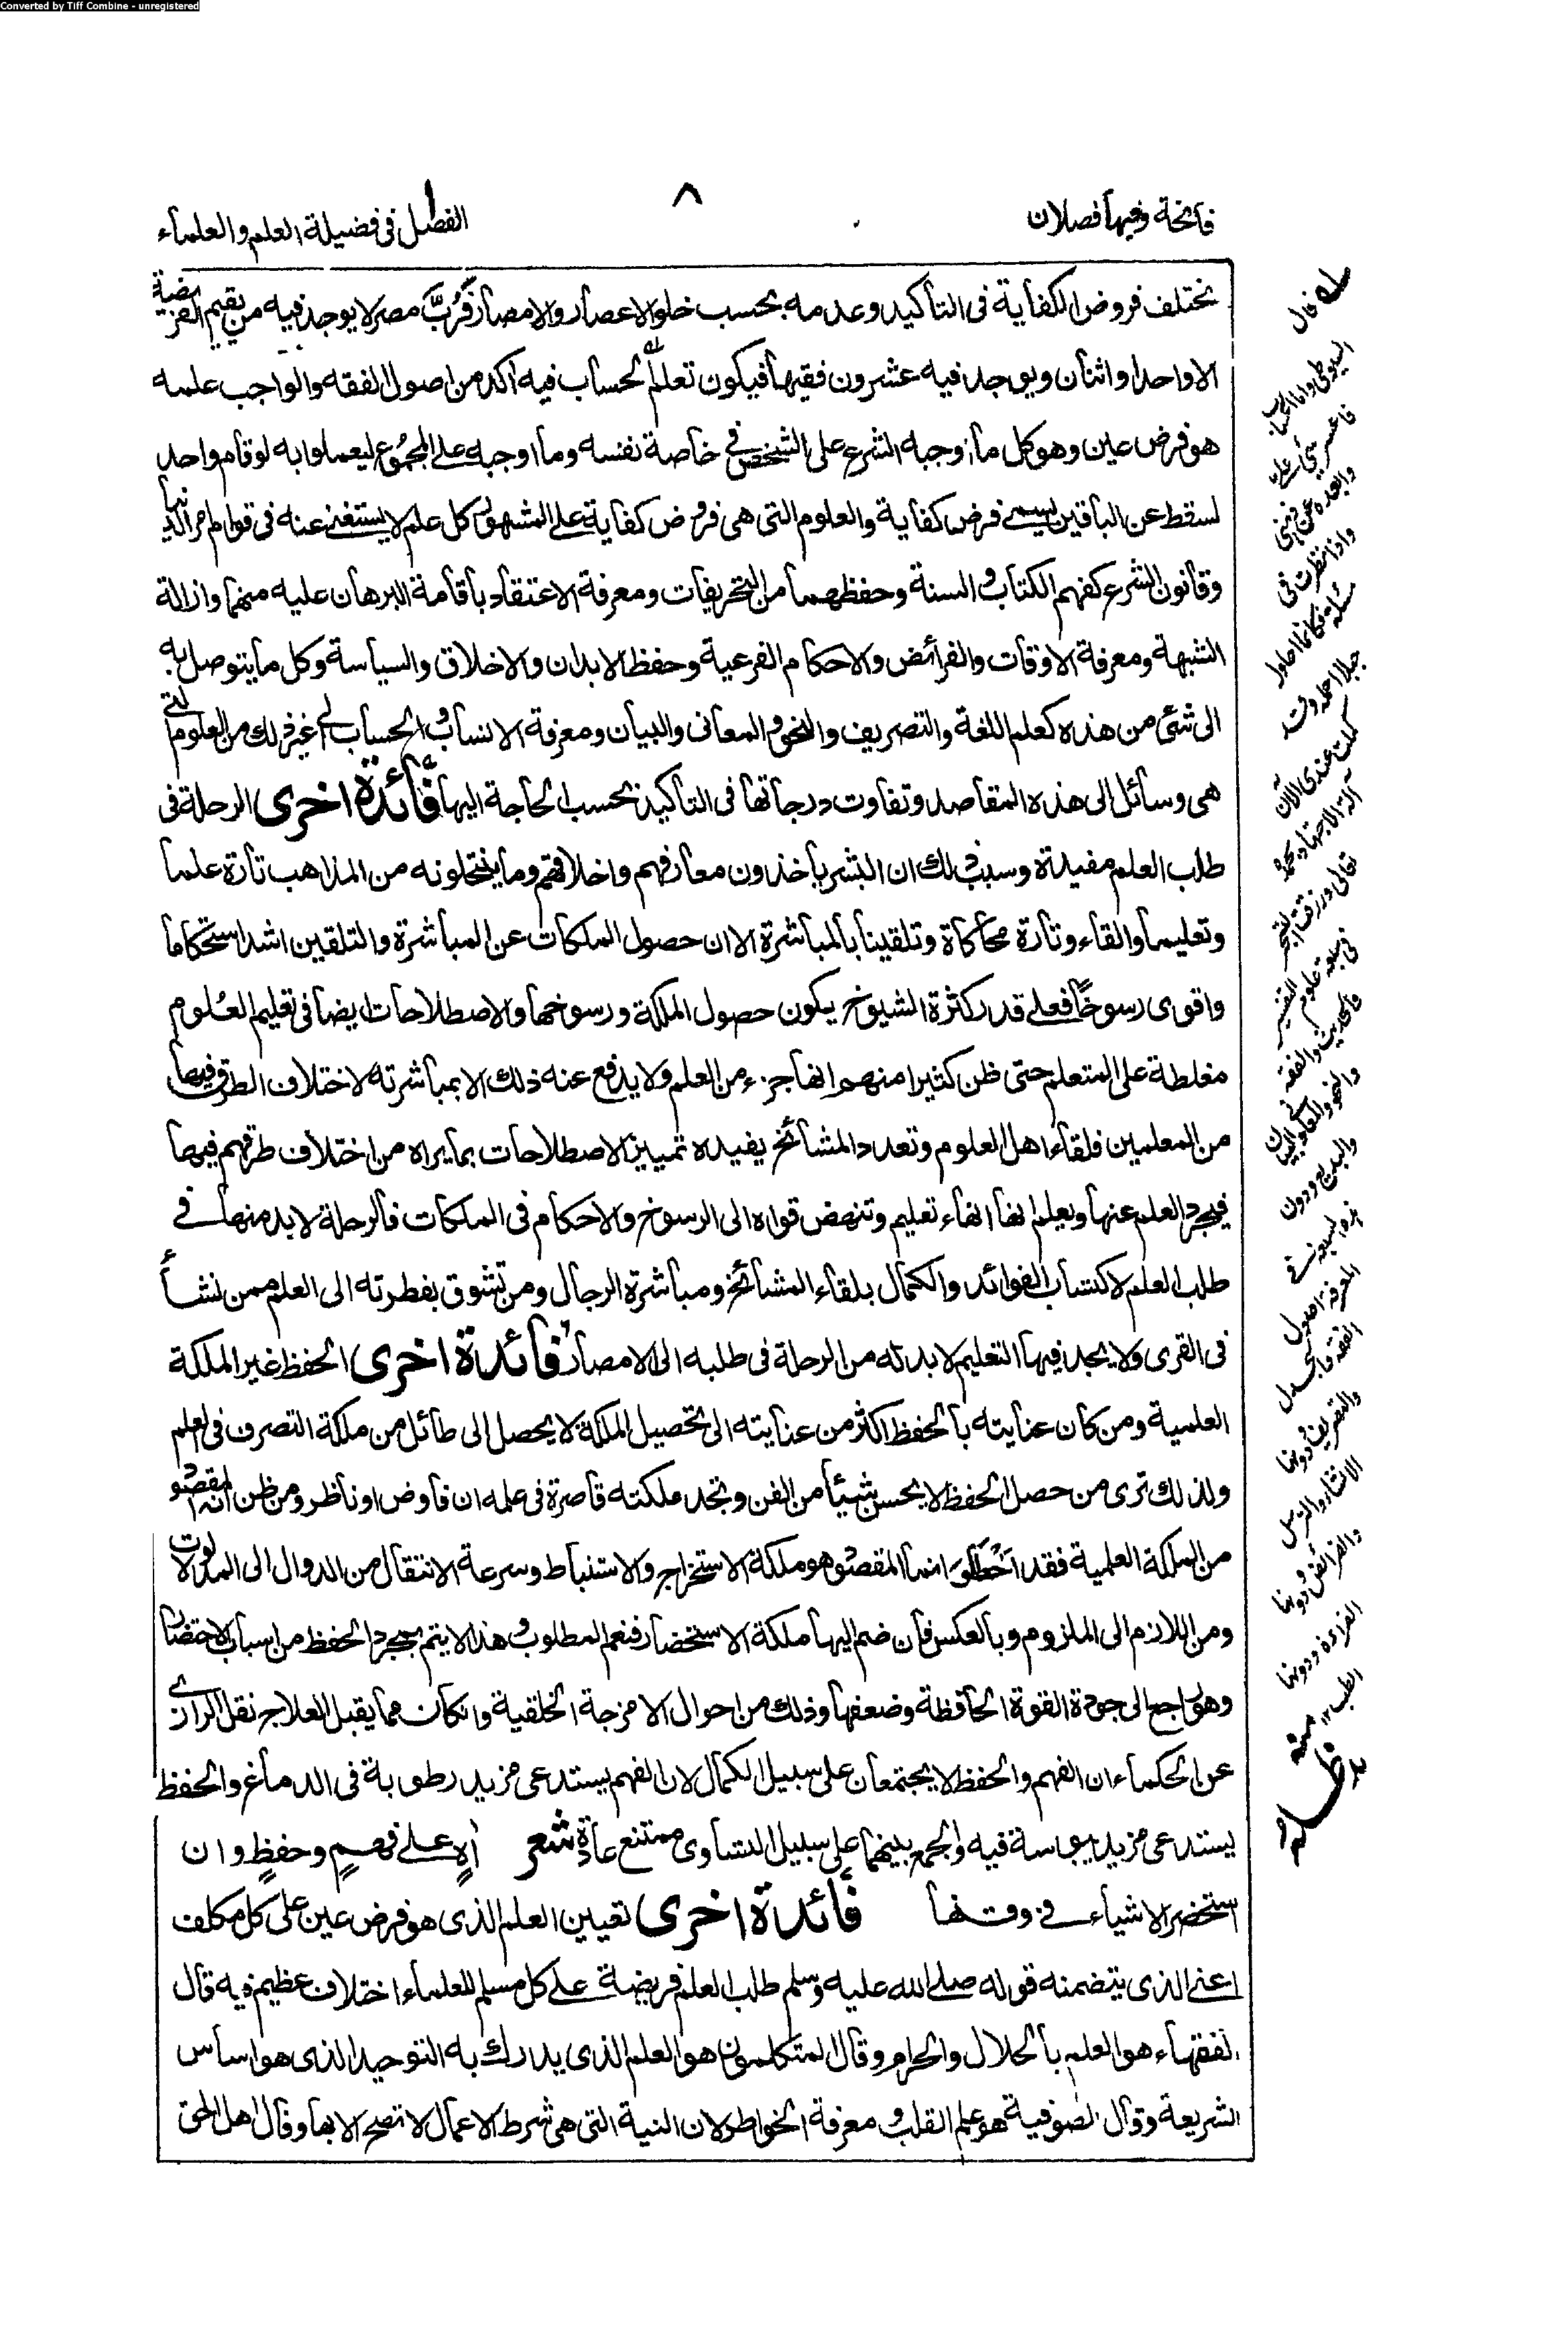 Converted by Tiff Combine - unregistered
فاتحة وفيها فصلان
٨
الفصل ١ فى فضيلة العلم والعلماء
تختلف فروض الكفاية فى التاكيد وعدمه بحسب خلو الاعصار والامصار فرُبَّ مصر لا يوجد فيه من يقيم الفريضية
الا واحد او اثنان ويوجد فيه عشرون فقيها فيكون تعلم الحساب فيه اكد من اصول الفقه والواجب علمه
هو فرض عين وهو كل ما اوجبه الشرع على الشخص فى خاصة نفسه وما اوجبه على المجموع ليعملوا به لو قام واحد
لسقط عن الباقين يسمى فرض كفاية والعلوم التى هى فروض كفاية على المشهور كل علم لا يستغنى عنه فى قوام امر الدنيا
وقانون الشرع كفهم الكتاب والسنة وحفظهما من التحريفات ومعرفة الاعتقاد باقامة البرهان عليه منهما وازالة
الشبهة ومعرفة الاوقات والفرائض والاحكام الفرعية وحفظ الابدان والاخلاق والسياسة وكل ما يتوصل به
الى شئ من هذه كعلم اللغة والتصريف والنحو والمعانى والبيان ومعرفة الانساب والحساب الى غير ذلك من العلوم التى
هى وسائل الى هذه المقاصد وتفاوت درجاتها فى التاكيد بحسب الحاجة اليها فائدة اخرى الرحلة فى
طلب العلم مفيدة وسبب ذلك ان البشر ياخذون معارفهم واخلاقهم وما ينتحلونه من المذاهب تارة علما
وتعليما والقاء وتارة محاكاة وتلقينا بالمباشرة الا ان حصول الملكات عن المباشرة والتلقين اشد استحكاما
واقوى رسوخًا فعلى قدر كثرة الشيوخ يكون حصول الملكة ورسوخها والاصطلاحات ايضا فى تعليم العُلوم
مغلطة على المتعلم حتى ظن كثيرا منهم انها جزء من العلم ولا يدفع عنه ذلك الا بمباشرته لاختلاف الطرق فيها
من المعلمين فلقاء اهل العلوم وتعدد المشائخ يفيده تمييز الاصطلاحات بما يراه من اختلاف طرقهم فيها
فيجرد العلم عنها ويعلم انها انحاء تعليم وتنهض قواه الى الرسوخ والاحكام فى الملكات فالرحلة لا بد منها فى
طلب العلم لاكتساب الفوائد والكمال بلقاء المشائخ ومباشرة الرجال ومن تشوق بفطرته الى العلم ممن نشأ
فى القرى ولا يجد فيها التعليم لا بد له من الرحلة فى طلبه الى الامصار فائدة اخرى الحفظ غير الملكة
العلمية ومن كان عنايته بالحفظ اكثر من عنايته الى تحصيل الملكة لا يحصل الى طائل من ملكة التصرف فى العلم
ولذلك ترى من حصل الحفظ لا يحسن شيئا من الفن وتجد ملكته قاصرة فى علمه ان فاوض او ناظر ومن ظن انه المقصود
من الملكة العلمية فقد اخطأ وانما المقصود هو ملكة الاستخراج والاستنباط وسرعة الانتقال من الدوال الى المدلولات
ومن اللازم الى الملزوم وبالعكس فان ضم اليها ملكة الاستحضار فنعم المطلوب وهذا لا يتم بمجرد الحفظ من اسباب الاحضار
وهو راجع الى جودة القوة الحافظة وضعفها وذلك من احوال الامزجة الخلقية وان كان مما يقبل العلاج نقل الرازى
عن الحكماء ان الفهم والحفظ لا يجتمعان على سبيل الكمال لان الفهم يستدعى مزيد رطوبة فى الدماغ والحفظ
يستدعى مزيد يبوسة فيه والجمع بينهما على سبيل التساوى ممتنع عادة شعر الاعلى فهمٍ وحفظٍ وان
استحضر الاشياء فى وقتها فائدة اخرى تعيين العلم الذى هو فرض عين على كل مكلف
اعنى الذى يتضمنه قوله صلى الله عليه وسلم طلب العلم فريضة على كل مسلم للعلماء اختلاف عظيم فيه قال
الفقهاء هو العلم بالحلال والحرام وقال المتكلمون هو العلم الذى يدرك به التوحيد الذى هو اساس
الشريعة وقال الصوفية هو علم القلب ومعرفة الخواطر لان النية التى هى شرط الاعمال لا تصح الا بها وقال اهل الحق
له قال
السيوطى واما الحساب
فاعسر شئ علىّ
وابعده عن ذهنى
واذا نظرت فى
مسئلة فكانما احاول
جبلا احمله وقد
كملت عندى الآن
آلة الاجتهاد بحمد
تعالى ورزقت التبحر
فى سبعة علوم التفسير
والحديث والفقه
والنحو والمعانى والبيان
والبديع ودون
هذه السبعة فى
المعرفة اصول
الفقه والجدل
والتصريف ودونها
الانشاء والترسل
والفرائض ودونها
القراءة ودونها
الطب ١٢ منه
مد ظله